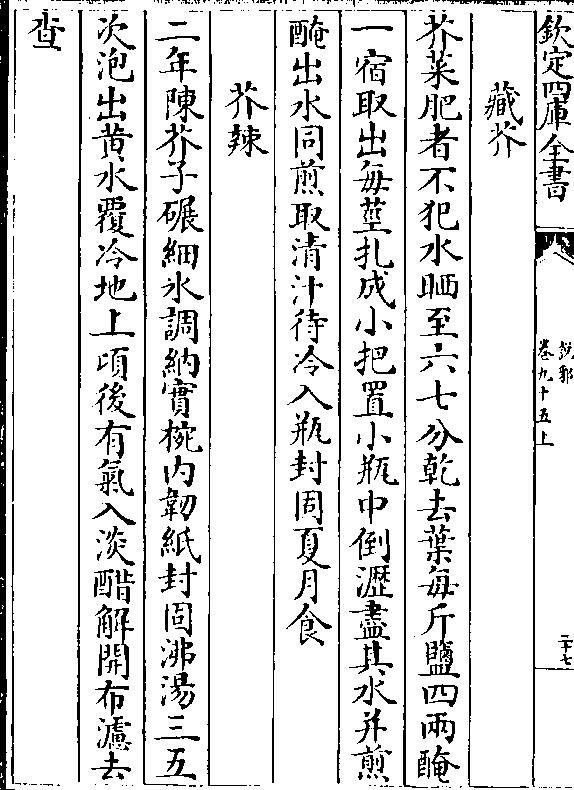 欽定四庫全書
說郛
卷九十五上
二十七
藏芥
芥菜肥者不犯水晒至六七分乾去葉每斤鹽四兩醃
一宿取出每莖扎成小把置小瓶中倒瀝盡其水并煎
醃出水同煎取清汁待冷入瓶封固夏月食
芥辣
二年陳芥子碾細水調納實椀内韌紙封固沸湯三五
次泡出黄水覆冷地上頃後有氣入淡醋解開布濾去
查